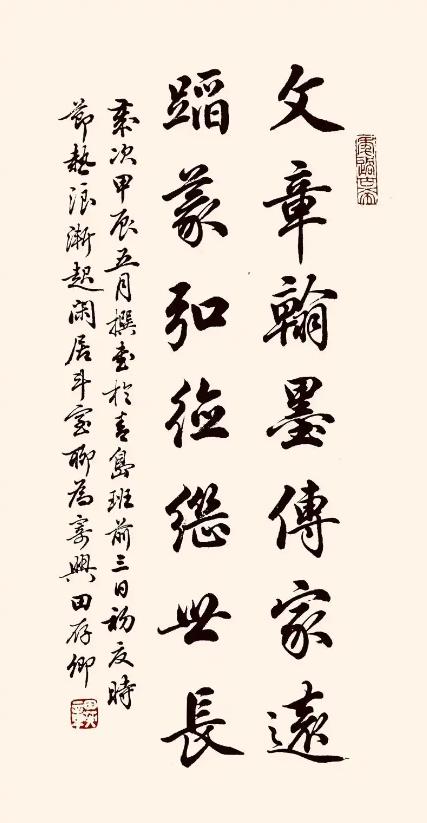 文章翰墨傳家遠
蹈義弘德繼世長
歲次甲辰五月撰書於青島班前三日初度時
節熱浪漸起閑居斗室聊為寄興田存卿